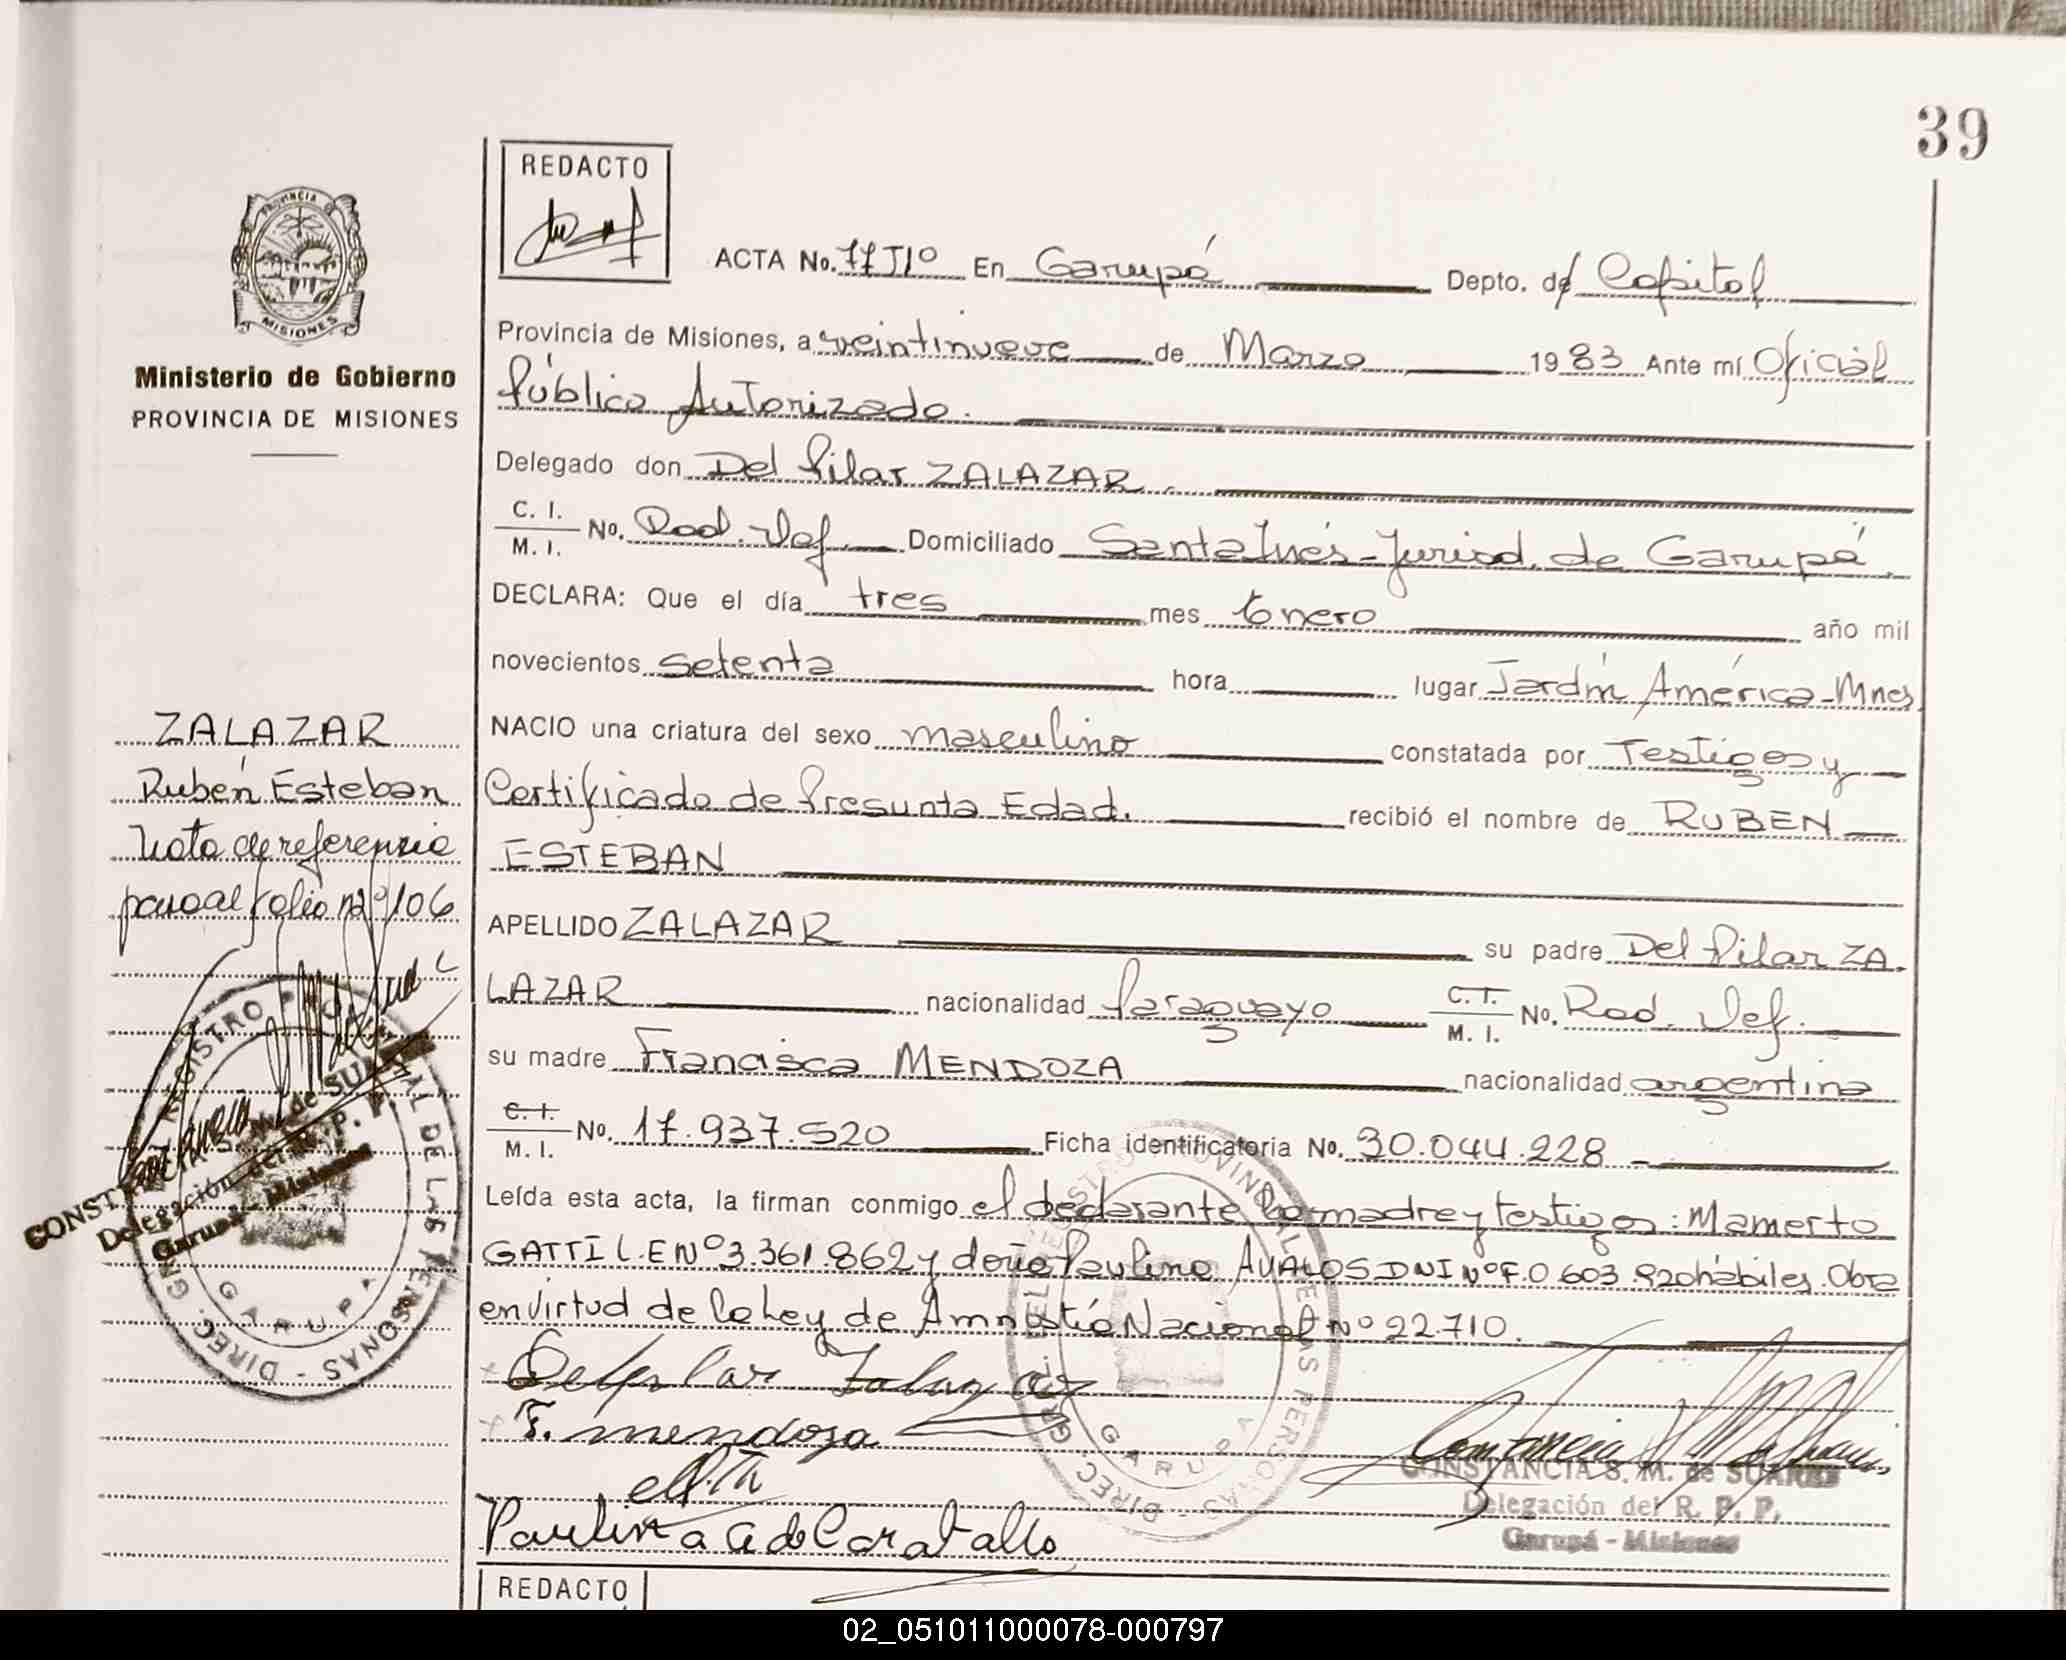 39
REDACTO
PROVINCIA DE
MISIONES
Ministerio de Gobierno
PROVINCIA DE MISIONES
ACTA No. 77 TIº En Garupá Depto. de Capital
Provincia de Misiones, a veintinueve de Marzo 1983 Ante mí Oficial
Público Autorizado.
Delegado don Del Pilar ZALAZAR.
C. I.
M. I. No. Rad. Def. Domiciliado Santa Inés - Jurisd. de Garupá.
DECLARA: Que el día tres mes Enero año mil
novecientos setenta hora lugar Jardín América - Mnes
NACIO una criatura del sexo masculino constatada por Testigos y
Certificado de Presunta Edad. recibió el nombre de RUBEN
ESTEBAN
APELLIDO ZALAZAR su padre Del Pilar ZA
LAZAR nacionalidad Paraguayo C. I.
M. I. No. Rad. Def.
su madre Francisca MENDOZA nacionalidad argentina
C. I.
M. I. No. 17.937.520 Ficha identificatoria No. 30.044.228
Leída esta acta, la firman conmigo el declarante la madre y testigos: Mamerto
GATTI L.E Nº 3.361.862 y doña Paulina AVALOS DNI Nº F.0 603.920 hábiles. Obra
en virtud de la Ley de Amnistía Nacional Nº 22.710.
Del Pilar Zalazar
F. mendoza
Paulina A de Caraballo
CONSTANCIA S. M. de SUARES
Delegación del R. P. P.
Garupá - Misiones
ZALAZAR
Rubén Esteban
Nota de referencia
pasa al folio nº 106
CONSTANCIA S. M. de SUARES
Delegación del R. P. P.
Garupá - Misiones
DIREC. GRAL. DEL REGISTRO PROVINCIAL DE LAS PERSONAS
GARUPA
DIREC. GRAL. DEL REGISTRO PROVINCIAL DE LAS PERSONAS
GARUPA
REDACTO
02_051011000078-000797